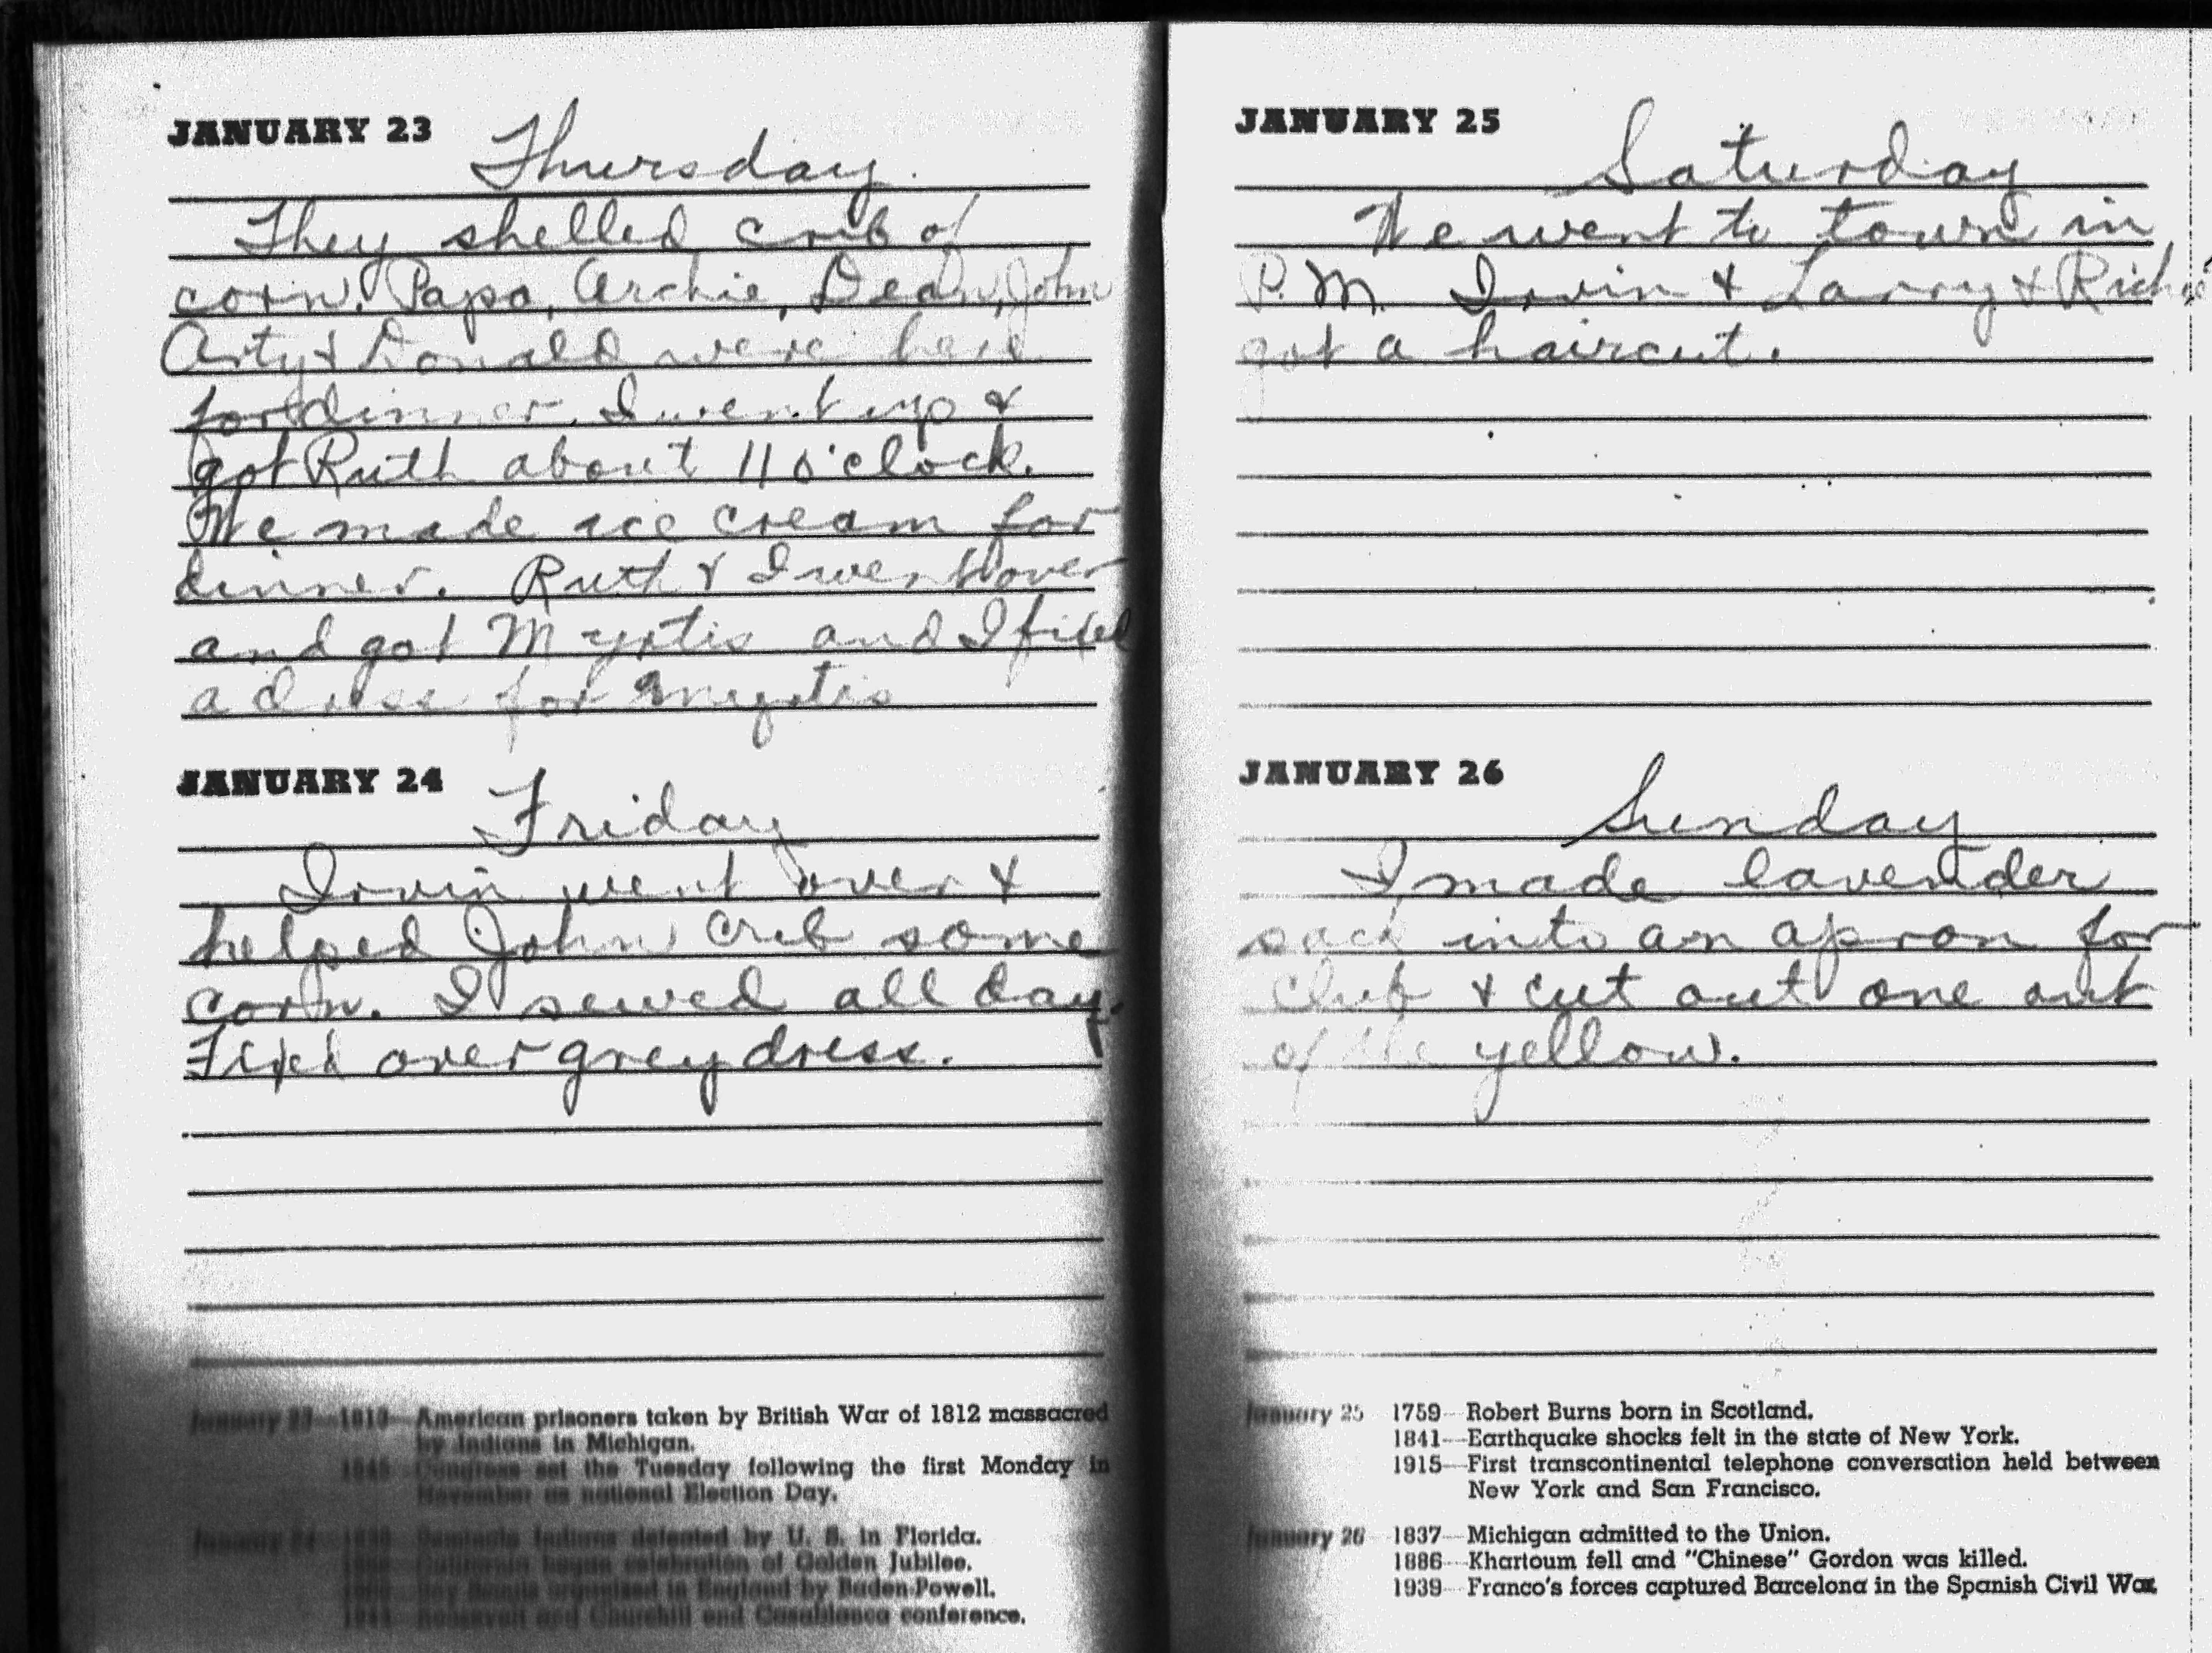 JANUARY 23 Thursday.
They shelled crib of
corn. Papa, Archie, Dean, John
Arty & Donald were here
for dinner. I went up &
got Ruth about 11 o'clock.
We made ice cream for
dinner. Ruth & I went over
and got Myrtis and I fixed
a dress for Myrtis
JANUARY 24 Friday
Irvin went over &
helped John crib some
corn. I sewed all day.
Fixed over grey dress.
January 23—1813—American prisoners taken by British War of 1812 massacred
by Indians in Michigan.
1845 Congress set the Tuesday following the first Monday in
November as national Election Day.
January 24 Seminole Indians defeated by U. S. in Florida.
California began celebration of Golden Jubilee.
Boy Scouts organized in England by Baden-Powell.
Roosevelt and Churchill end Casablanca conference.
JANUARY 25 Saturday
We went to town in
P.M. Irvin & Larry & Richie
got a haircut.
JANUARY 26 Sunday
I made lavender
sack into an apron for
Club & cut out one out
of the yellow.
January 25 1759—Robert Burns born in Scotland.
1841—Earthquake shocks felt in the state of New York.
1915—First transcontinental telephone conversation held between
New York and San Francisco.
January 26 1837—Michigan admitted to the Union.
1886—Khartoum fell and "Chinese" Gordon was killed.
1939—Franco's forces captured Barcelona in the Spanish Civil War.